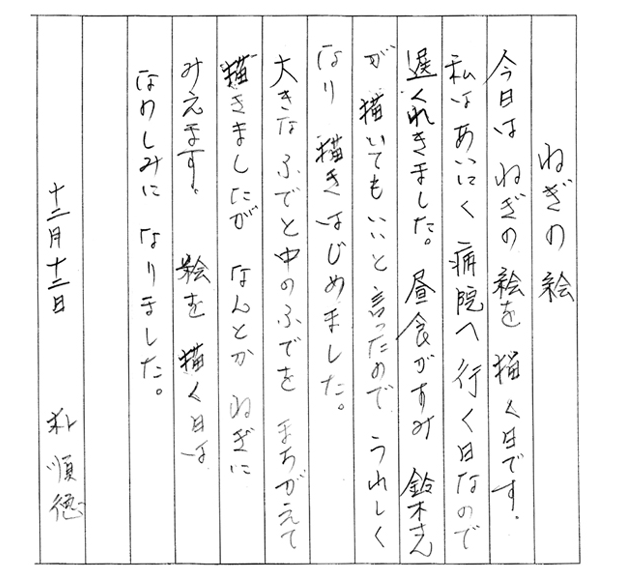 ねぎの絵
今日は ねぎの絵を 描く日です.
私はあいにく 病院へ 行く日なので
遅くれきました。昼食がすみ 鈴木さん
が 描いてもいいと言ったので うれしく
なり 描きはじめました。
大きな ふでと中のふでを まちがえて
描きましたが なんとか ねぎに
みえます. 絵を 描く日は
なめしみに なりました。
十二月十二日 朴 順徳